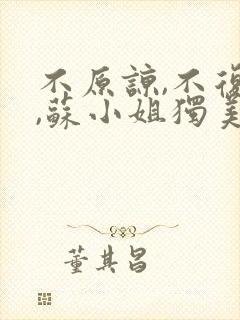 不原諒,不復
,蘇小姐獨美
董其昌